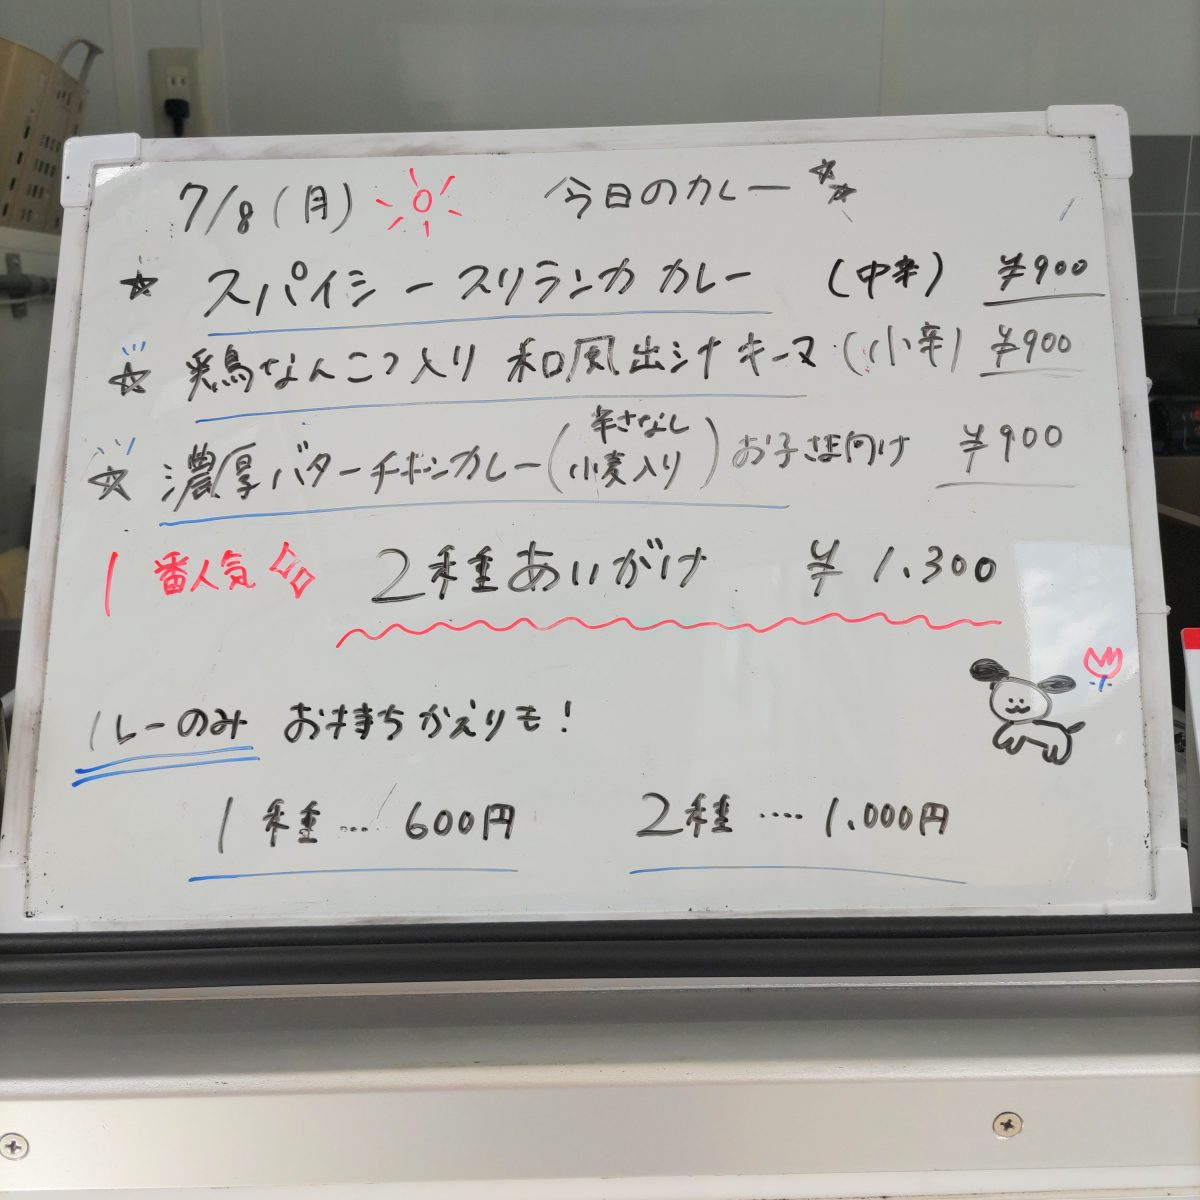 7/8(月) 今日のカレー
☆ スパイシースリランカカレー (中辛) ¥900
☆ 鶏なんこつ入り 和風出シナキーマ (小辛) ¥900
☆ 濃厚バターチキンカレー(辛さなし 小麦入り) お子さま向け ¥900
1番人気 2種あいがけ ¥1.300
ルーのみ お持ちかえりも!
1種… 600円 2種…. 1.000円